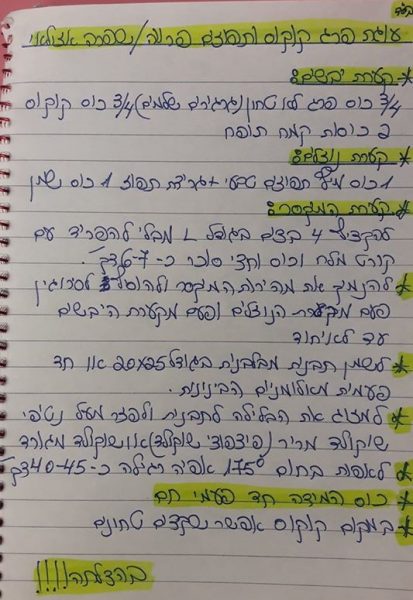 בס"ד
עוגת פרג קוקוס ותפוזים פרווה/שפרה אזולאי
* קערת יבשים:
3/4 כוס פרג לא טחון(גרגירים שלמים) 3/4 כוס קוקוס
2 כוסות קמח תופח
* קערת נוזלים:
1 כוס מיץ תפוזים טבעי +גרידת תפוז 1 כוס שמן
* קערת המיקסר:
להקציף 4 ביצים בגודל L מבלי להפריד עם
קורט מלח וכוס וחצי סוכר כ-7 דק'.
* להנמיך את מהירות המיקסר ולהוסיף לסרוגין
פעם מקערת הנוזלים ופעם מקערת היבשים
עד לאיחוד
* לשמן תבנית מלבנית בגודל 20x25 או חד
פעמית מאלומניום הבינונית.
* למזוג את הבלילה לתבנית ולפזר מעל נטיפי
שוקולד מריר (פיצפוצי שוקולד)או שוקולד מגורד
* לאפות בחום 175° אפיה רגילה כ-40-45דק'
* כוס המידה חד פעמי חם
* במקום קוקוס אפשר שקדים טחונים
בהצלחה!!!!